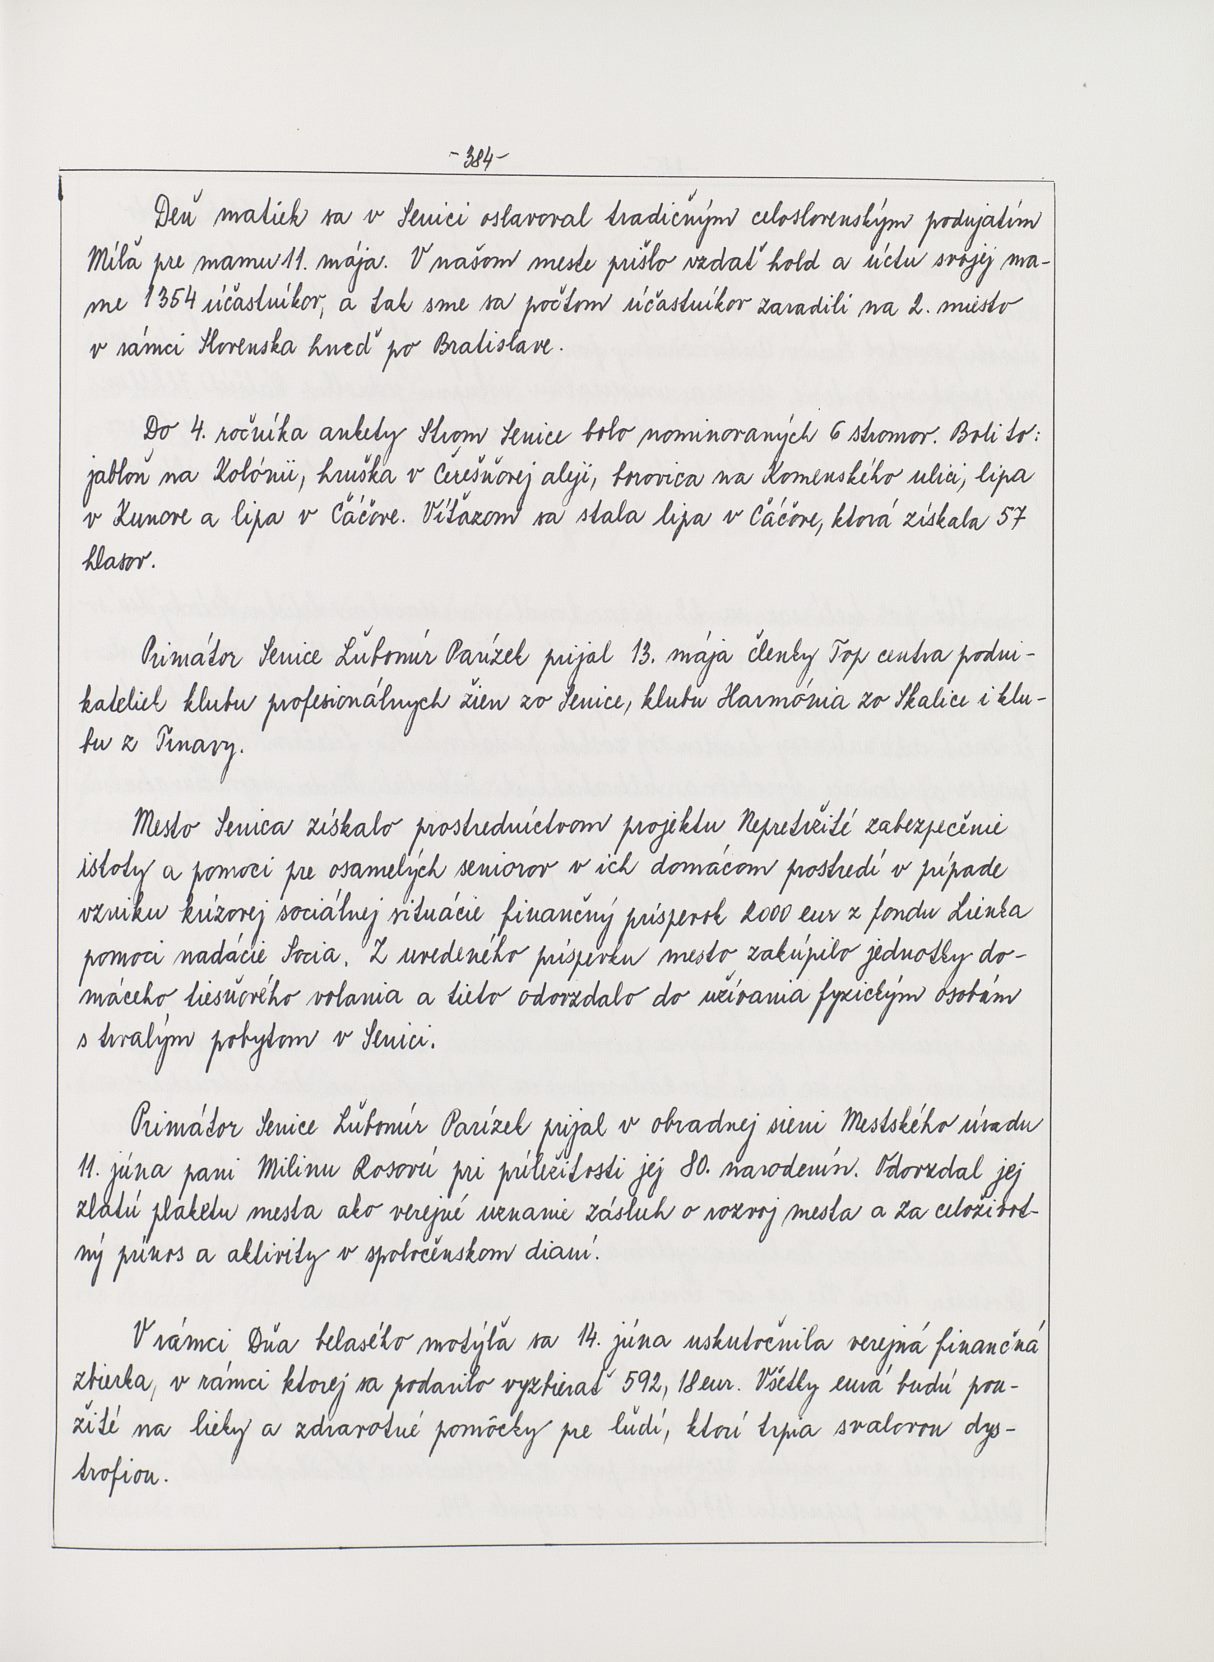 -384-
Deň matiek sa v Senici oslavoval tradičným celoslovenským podujatím
Míľa pre mamu 11. mája. V našom meste prišlo vzdať hold a úctu svojej ma-
me 1354 účastníkov, a tak sme sa počtom účastníkov zaradili na 2. miesto
v rámci Slovenska hneď po Bratislave.
Do 4. ročníka ankety Strom Senice bolo nominovaných 6 stromov. Boli to:
jabloň na Kolónii, hruška v Čerešňovej aleji, borovica na Komenského ulici, lipa
v Kunove a lipa v Čáčove. Víťazom sa stala lipa v Čáčove, ktorá získala 57
hlasov.
Primátor Senice Ľubomír Parízek prijal 13. mája členky Top centra podni-
kateliek klubu profesionálnych žien zo Senice, klubu Harmónia zo Skalice i klu-
bu z Trnavy.
Mesto Senica získalo prostredníctvom projektu Nepretržité zabezpečenie
istoty a pomoci pre osamelých seniorov v ich domácom prostredí v prípade
vzniku krízovej sociálnej situácie finančný príspevok 2000 eur z fondu Lienka
pomoci nadácie Socia. Z uvedeného príspevku mesto zakúpilo jednotky do-
máceho tiesňového volania a tieto odovzdalo do užívania fyzickým osobám
s trvalým pobytom v Senici.
Primátor Senice Ľubomír Parízek prijal v obradnej sieni Mestského úradu
11. júna pani Milinu Rosovú pri príležitosti jej 80. narodenín. Odovzdal jej
zlatú plaketu mesta ako verejné uznanie zásluh o rozvoj mesta a za celoživot-
ný prínos a aktivity v spoločenskom dianí.
V rámci Dňa belasého motýľa sa 14. júna uskutočnila verejná finančná
zbierka, v rámci ktorej sa podarilo vyzbierať 592,18 eur. Všetky eurá budú pou-
žité na lieky a zdravotné pomôcky pre ľudí, ktorí trpia svalovou dys-
trofiou.